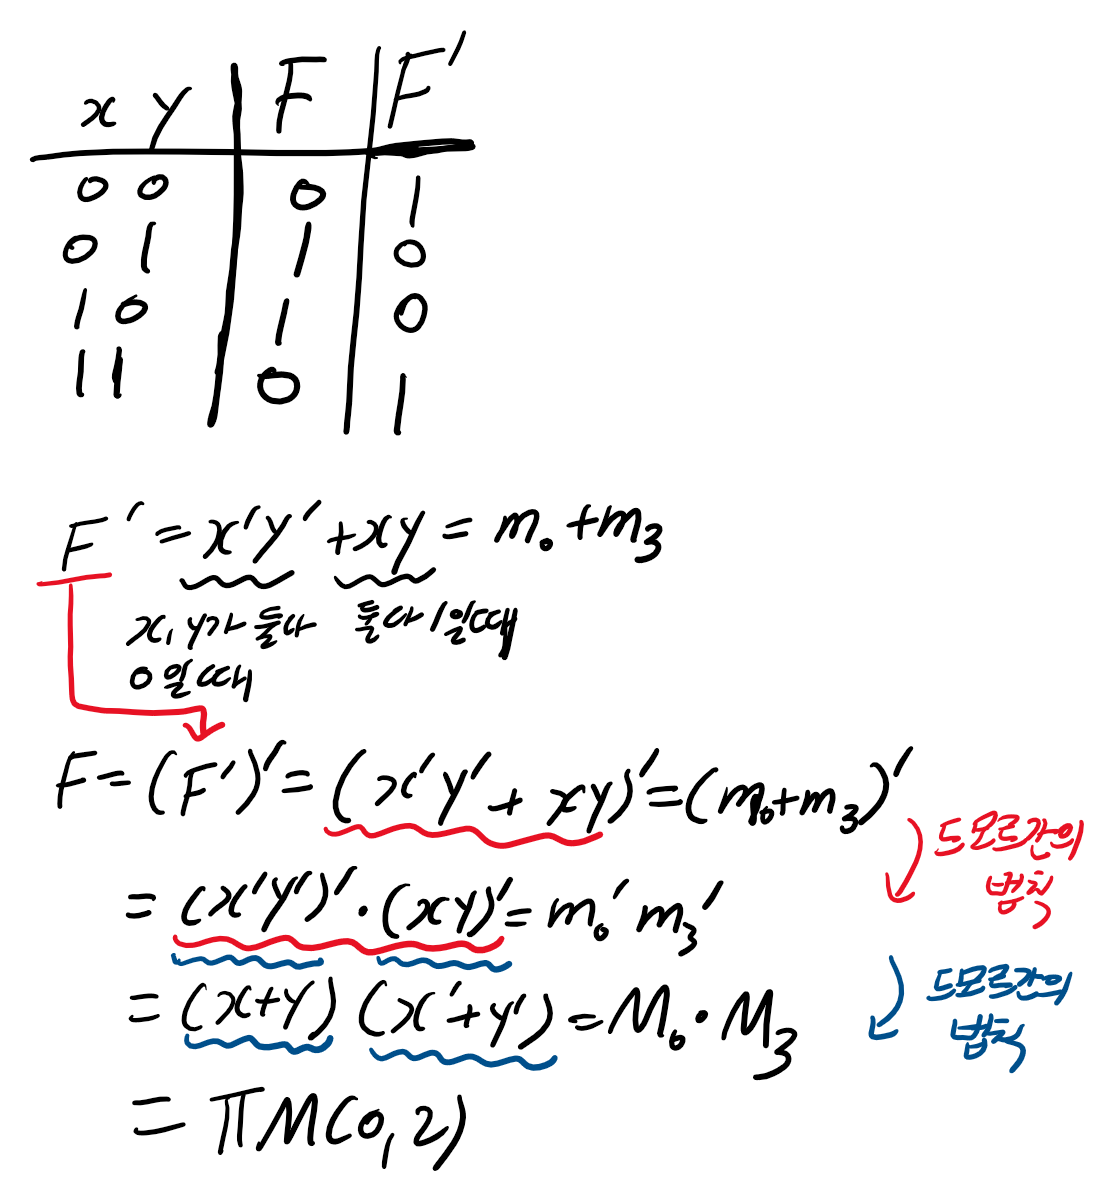 x y F F'
0 0 0 1
0 1 1 0
1 0 1 0
1 1 0 1
F' = x'y' + xy = m₀ + m₃
x, y가 둘다 둘다 1일때
0일때
F = (F')' = (x'y' + xy)' = (m₀ + m₃)'
드모르간의
법칙
= (x'y')' · (xy)' = m₀' m₃'
드모르간의
법칙
= (x+y) (x'+y') = M₀ · M₃
= πM(0, 2)